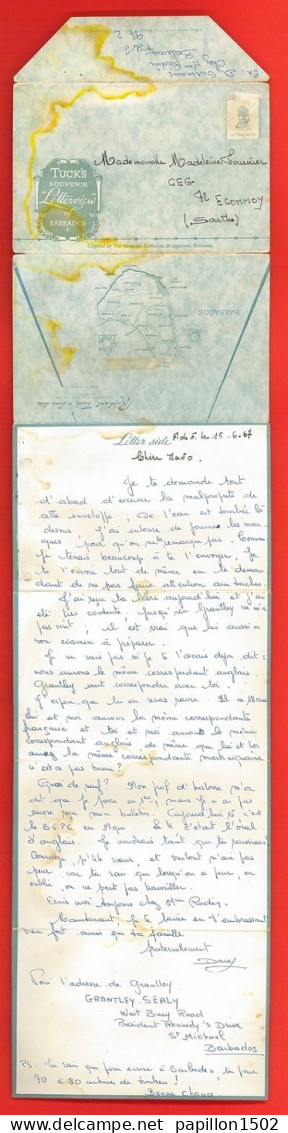 Ex: D. Germans
Chez Mme Rodin
TUCK'S
SOUVENIR
"Letterview"
OF
BARBADOS
Mademoiselle Madeleine Fournier
CEG
72 ECOMMOY
(Sarthe)
BARBADOS
Letter side
F de F. le 15-6-67
Chère Mado.
Je te demande tout
d'abord d'excuser la malpropreté de
cette enveloppe, De l'eau est tombée là
dessus. J'ai entouré de jaune les mar-
ques pour qu'on ne remarque pas. Comme
je tenais beaucoup à te l'envoyer. Je
te l'envoie tout de même en te deman-
dant de ne pas faire attention aux taches.
J'ai reçu ta lettre aujourd'hui et j'ai
été très contente. Jusqu'ici Grantley ne m'a
pas écrit, il est vrai que lui aussi a
son examen à préparer.
Je ne sais pas si je te l'avais déjà dit:
nous aurons le même correspondant anglais.
Grantley veut correspondre avec toi.
J'espère que tu en seras ravie.
lui et moi aurons la même correspondante
française et toi et moi aurons le même
correspondant anglais, de même que lui et toi
aurez la même correspondante martiniquaise
n'est ce pas beau?
Quoi de neuf? Mon prof d'histoire m'a
dit que je passe en mais je n'ai pas
encore reçu mon bulletin. Aujourd'hui 15, c'est
le BEPC en Mque. Le 4 c'était l'oral
d'anglais. Je voudrais tant que tu réussisses
Courage, p'tite sœur, et surtout n'aie pas
peur car tu sais que lorsqu'on a peur, on
oublie, on ne peut pas travailler.
Ecris moi toujours chez Mme Rodin.
Maintenant, je te laisse en t'embrassant
bien fort ainsi que ta famille
fraternellement
Dany
Voici l'adresse de Grantley
GRANTLEY SEALY
West Bury Road
President Kennedy's Drive
St Michael
Barbados
PS. Tu sais que pour écrire à Barbados, tu paies
70 à 80 centimes de timbres!
Bonne chance
www.delcampe.net papillon1502